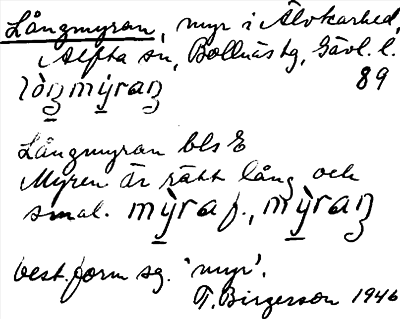 Långmyran, myr i Älvkarhed,
Alfta sn, Bollnäs tg, Gävl. l.
lòŋmýraŋ 89
Långmyran bls E
Myren är rätt lång och
smal. mỳra f., mỳraŋ
best. form sg. 'myr'.
T. Birgerson 1946